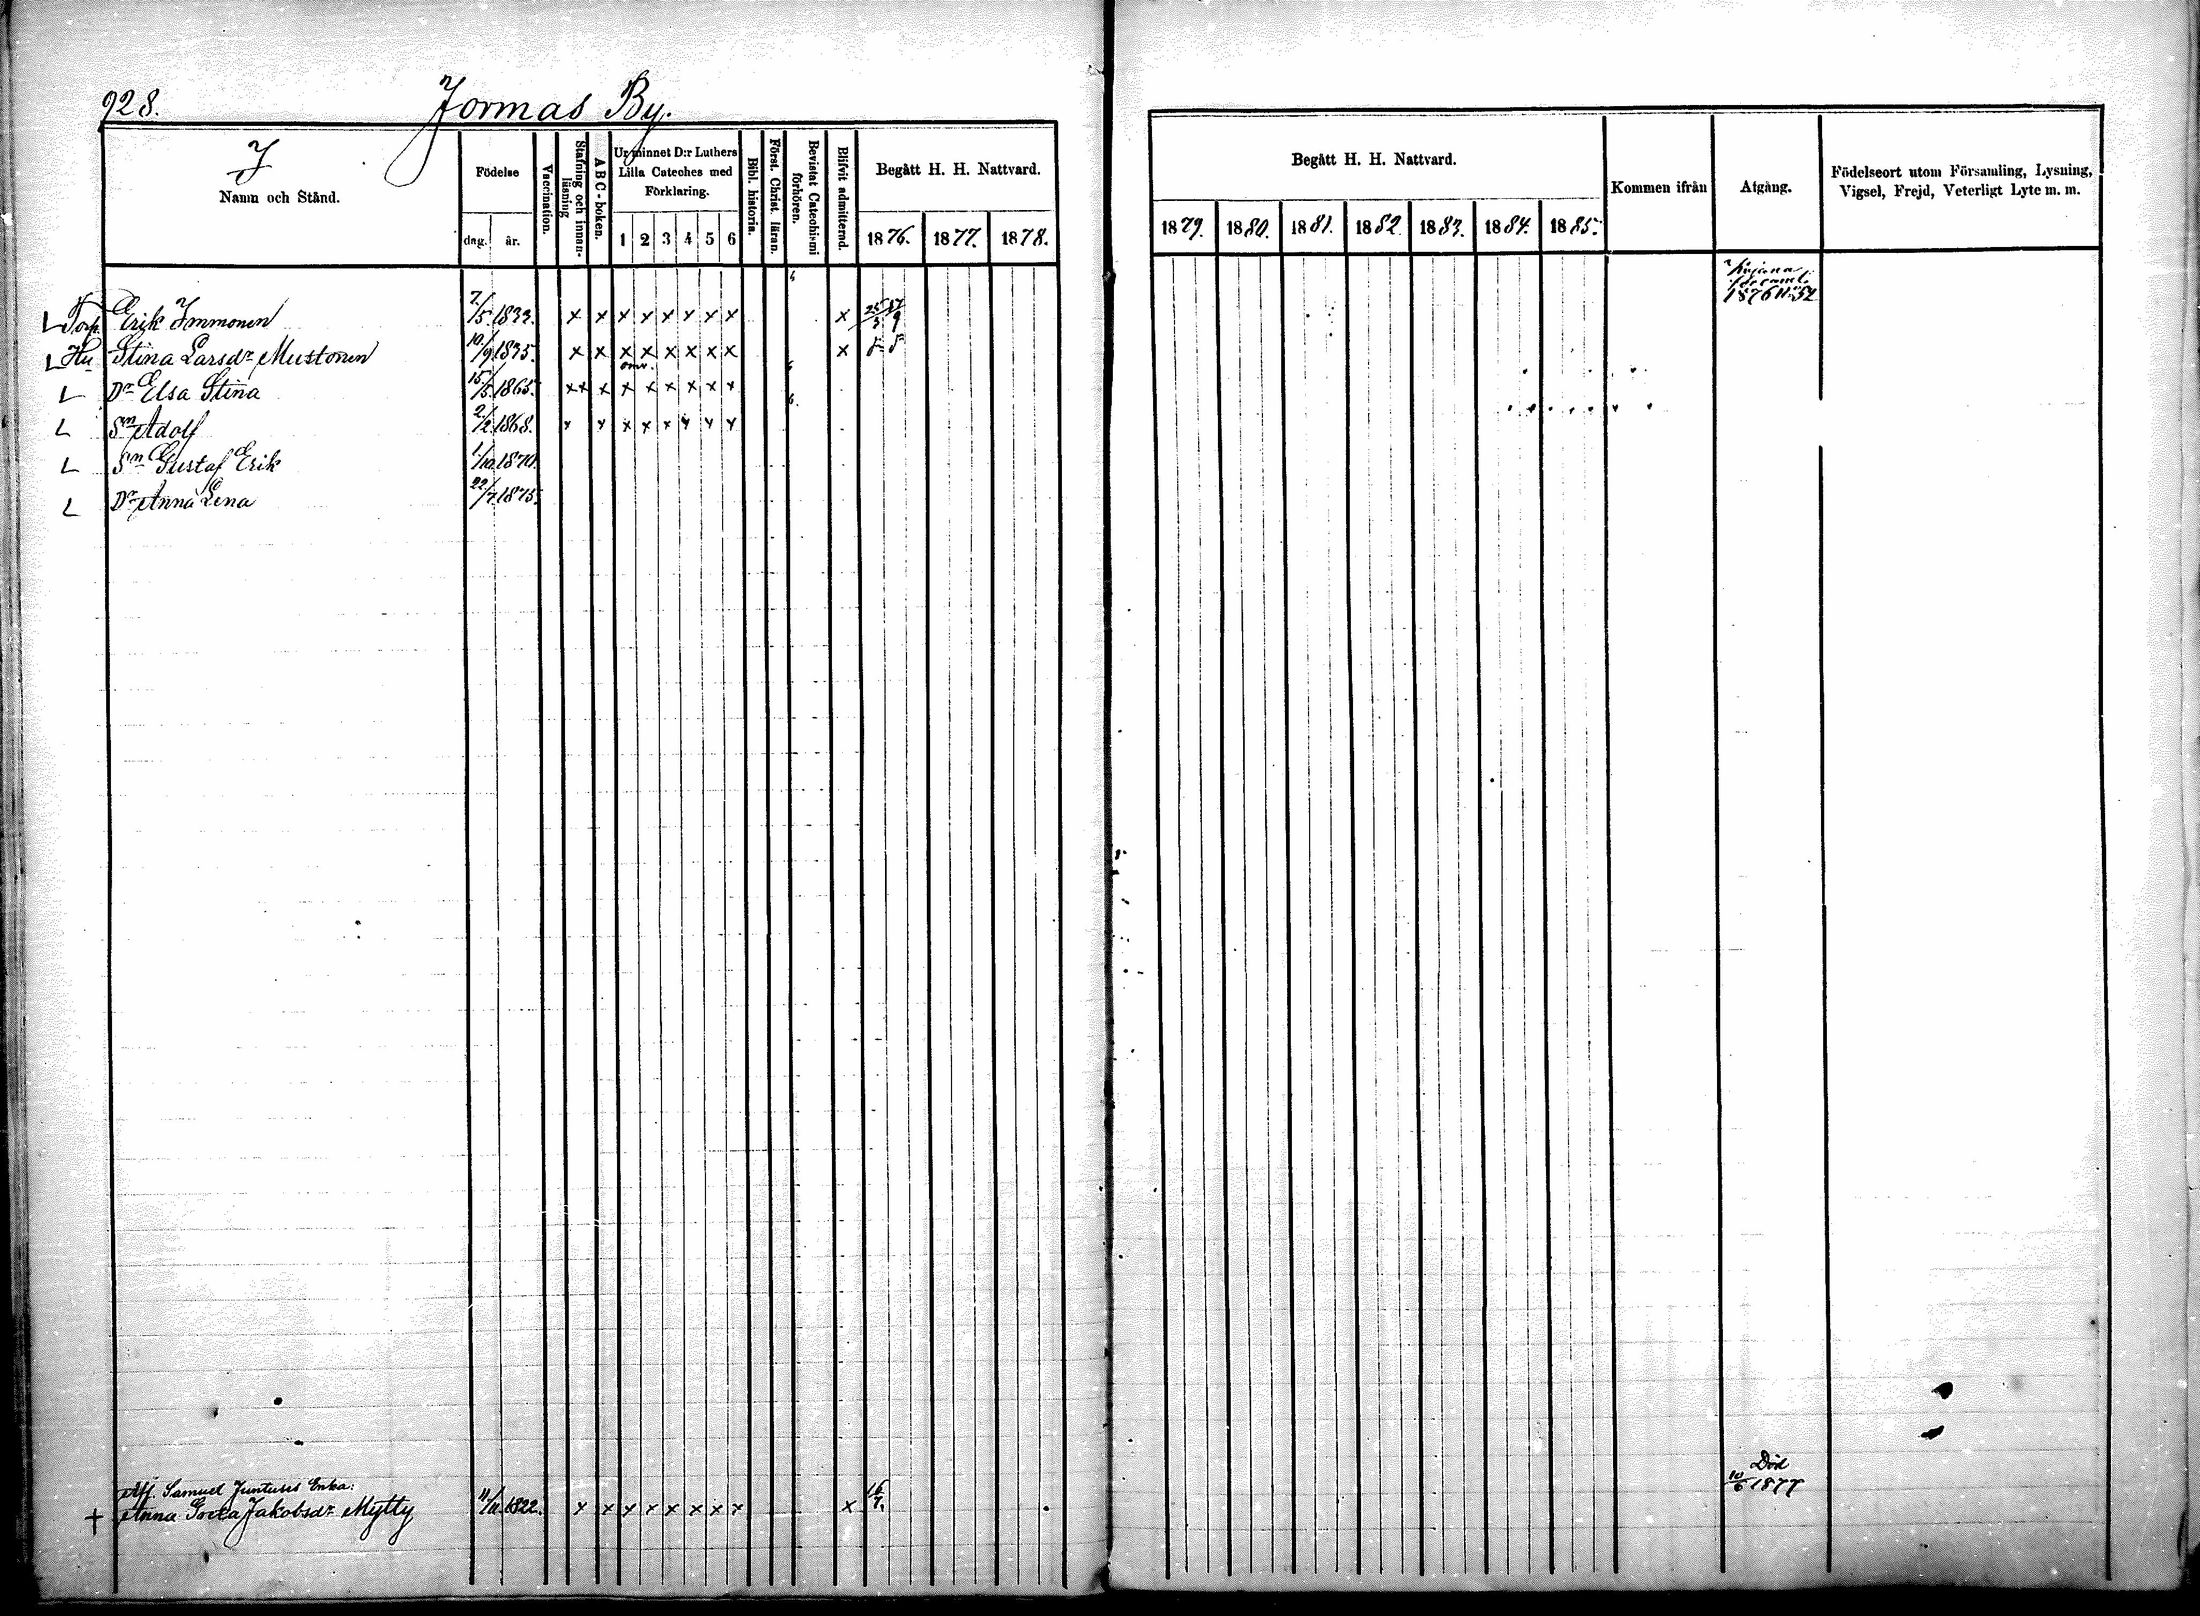 928. Jormas By.
J
Namn och Stånd.
Födelse
dag. år.
Vaccination.
Stafning och innan-
läsning
ABC-boken.
Ur minnet D:r Luthers
Lilla Cateches med
Förklaring.
1 2 3 4 5 6
Bibl. historia.
Först. Christ. läran.
Bevistat Catechismi
förhören.
Blifvit admitterad.
Begått H. H. Nattvard.
1876. 1877. 1878.
Begått H. H. Nattvard.
1879. 1880. 1881. 1882. 1883. 1884. 1885.
Kommen ifrån
Afgång.
Födelseort utom Församling, Lysning,
Vigsel, Frejd, Veterligt Lyte m. m.
Kajana
församl.
1876 N:o 52
L Torp. Erik Immonen 7/5 1833. x x x x x x x x x
L Hu Stina Larsdr Mustonen 10/9 1835. x x x x x x x x x
L Dr Elsa Stina 15/5 1865. x x x x x x x x x
L Sn Adolf 2/2 1868. x x x x x x x x
L Sn Gustaf Erik 1/10 1870.
L Dr Anna Lena 22/7 1875.
Afl. Samuel Juntuses Enka:
+ Anna Greta Jakobsdr Mytty 11/11 1822. x x x x x x x x x 16/7.
Död
10/6 1877